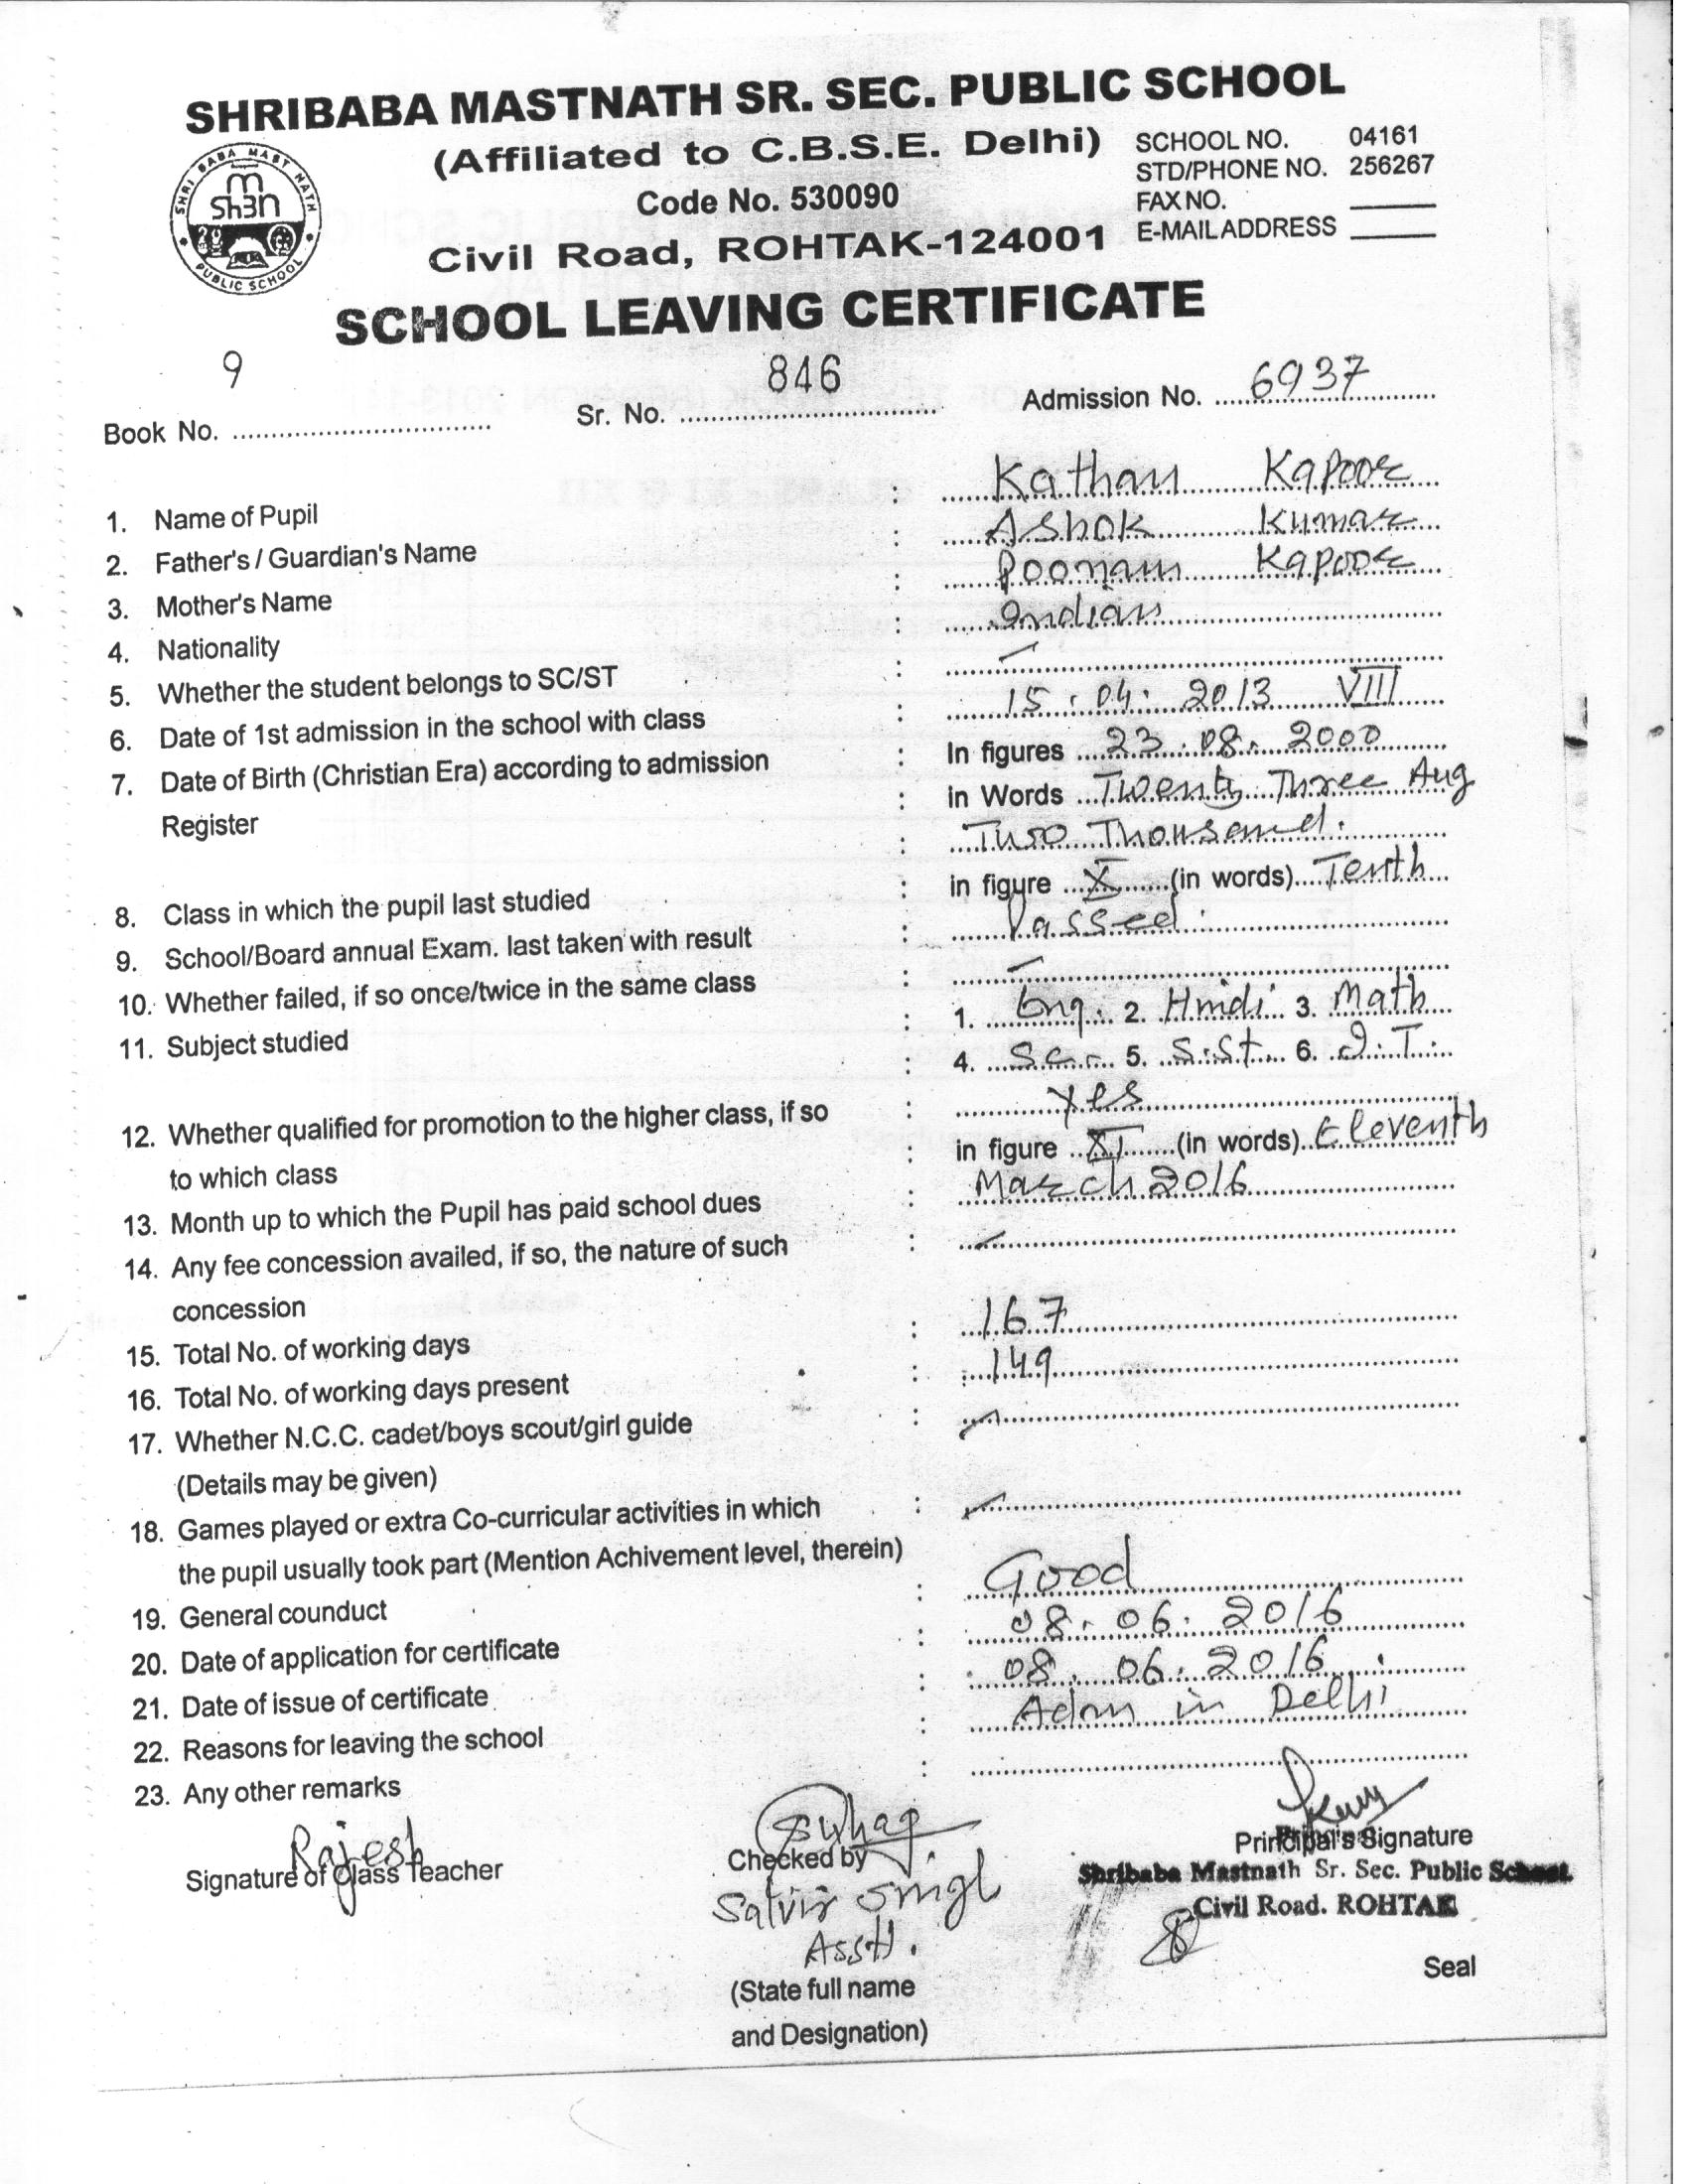 SHRIBABA MASTNATH SR. SEC. PUBLIC SCHOOL
(Affiliated to C.B.S.E. Delhi)
SCHOOL NO. 04161
STD/PHONE NO. 256267
Code No. 530090
FAX NO.
E-MAIL ADDRESS
Civil Road, ROHTAK-124001
SHRI BABA MAST NATH
PUBLIC SCHOOL
SCHOOL LEAVING CERTIFICATE
Book No. 9 Sr. No. 846 Admission No. 6937
1. Name of Pupil : Kathan Kapoor
2. Father's / Guardian's Name : Ashok Kumar
3. Mother's Name : Poonam Kapoor
4. Nationality : Indian
5. Whether the student belongs to SC/ST : —
6. Date of 1st admission in the school with class : 15.04.2013 VIII
7. Date of Birth (Christian Era) according to admission : In figures 23.08.2000
Register : in Words Twenty Three Aug
: Two Thousand.
8. Class in which the pupil last studied : in figure X (in words) Tenth
9. School/Board annual Exam. last taken with result : Passed.
10. Whether failed, if so once/twice in the same class : —
11. Subject studied : 1. Eng. 2. Hindi 3. Math
: 4. Sc. 5. S.St. 6. I.T.
12. Whether qualified for promotion to the higher class, if so : Yes
to which class : in figure XI (in words) Eleventh
13. Month up to which the Pupil has paid school dues : March 2016
14. Any fee concession availed, if so, the nature of such : —
concession
15. Total No. of working days : 167
16. Total No. of working days present : 149
17. Whether N.C.C. cadet/boys scout/girl guide : —
(Details may be given)
18. Games played or extra Co-curricular activities in which : —
the pupil usually took part (Mention Achivement level, therein)
19. General counduct : Good
20. Date of application for certificate : 08.06.2016
21. Date of issue of certificate : 08.06.2016
22. Reasons for leaving the school : Adm in Delhi
23. Any other remarks :
Rajesh
Signature of Class Teacher
Checked by
Satvir Singh
Asstt.
(State full name
and Designation)
Principal's Signature
Shribaba Mastnath Sr. Sec. Public School
Civil Road. ROHTAK
Seal